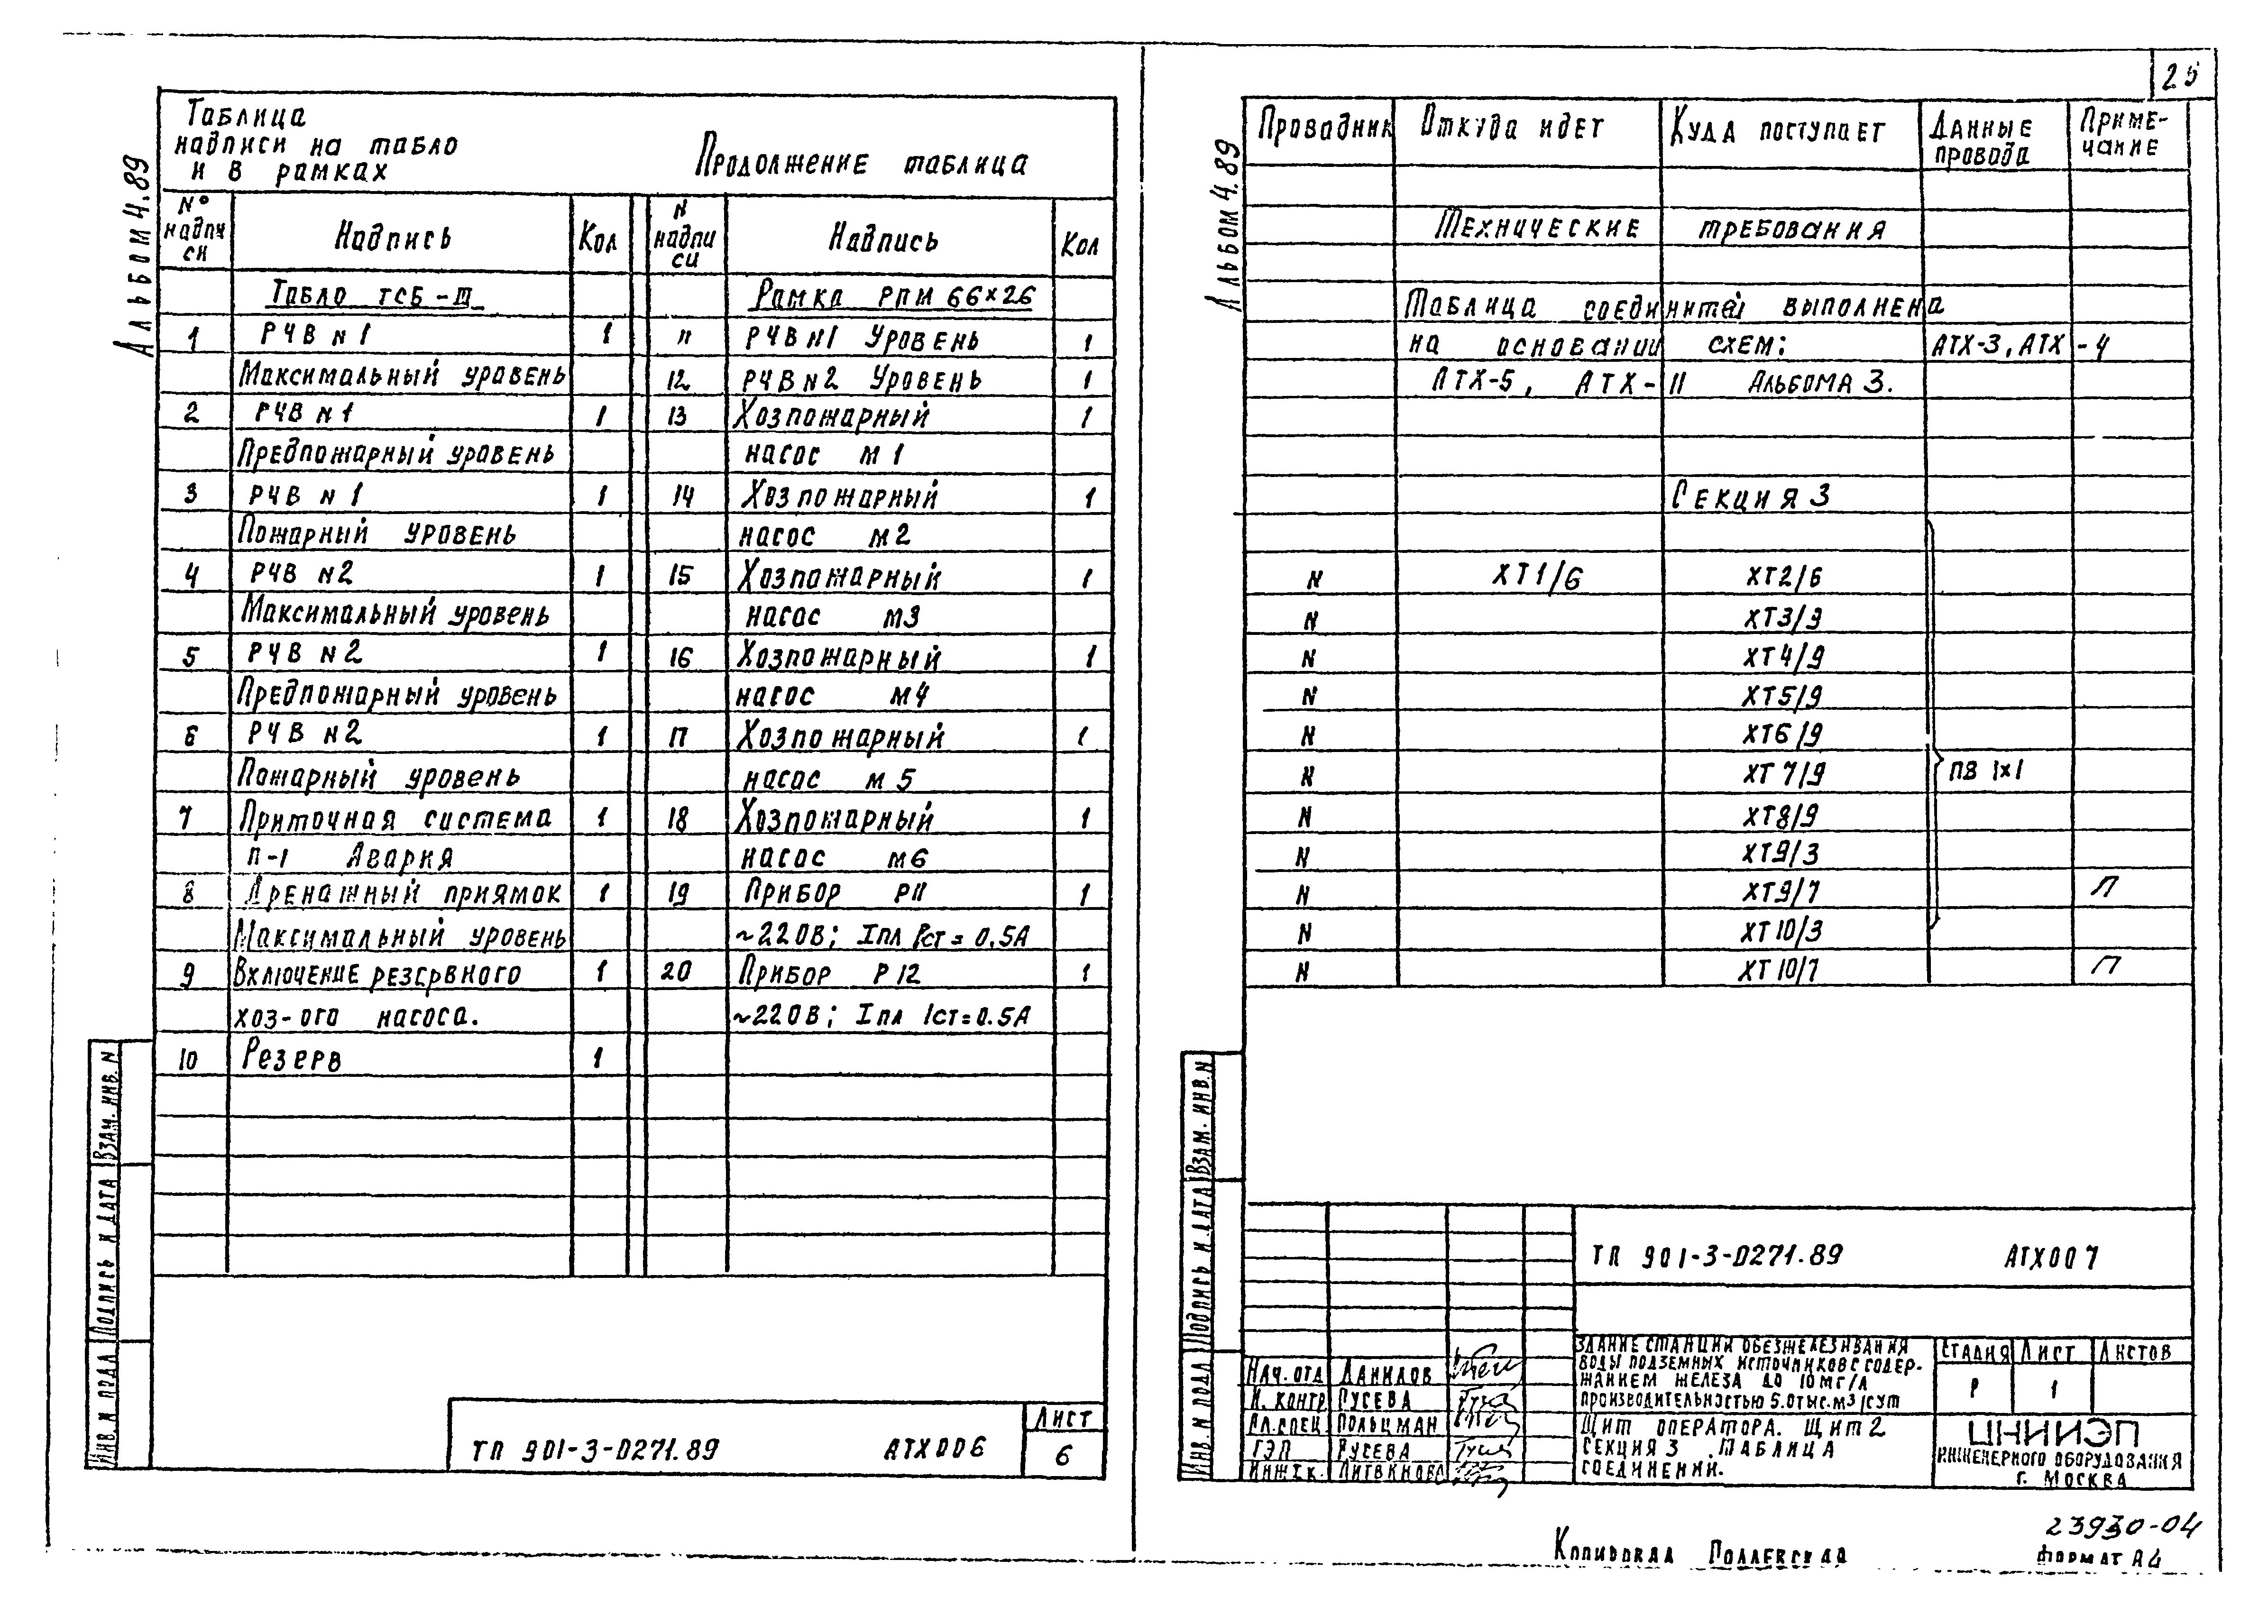 25
Альбом 4.89
Таблица
надписи на табло
и в рамках
Продолжение таблица
№ надпи си | Надпись | Кол | N надпи си | Надпись | Кол
Табло ТСБ-III | Рамка РПМ 66×26
1 | РЧВ N1 | 1 | 11 | РЧВ N1 Уровень | 1
Максимальный уровень | 12 | РЧВ N2 Уровень | 1
2 | РЧВ N1 | 1 | 13 | Хозпожарный | 1
Предпожарный уровень | насос М1
3 | РЧВ N1 | 1 | 14 | Хозпожарный | 1
Пожарный уровень | насос М2
4 | РЧВ N2 | 1 | 15 | Хозпожарный | 1
Максимальный уровень | насос М3
5 | РЧВ N2 | 1 | 16 | Хозпожарный | 1
Предпожарный уровень | насос М4
6 | РЧВ N2 | 1 | 17 | Хозпожарный | 1
Пожарный уровень | насос М5
7 | Приточная система | 1 | 18 | Хозпожарный | 1
П-1 Авария | насос М6
8 | Дренажный приямок | 1 | 19 | Прибор Р11 | 1
Максимальный уровень | ~220В; Iпл Iст=0.5А
9 | Включение резервного | 1 | 20 | Прибор Р12 | 1
хоз-ого насоса. | ~220В; Iпл Iст=0.5А
10 | Резерв | 1
Инв. N подл | Подпись и дата | Взам. инв. N
ТП 901-3-0271.89 АТХ006
Лист
6
Альбом 4.89
Проводник | Откуда идет | Куда поступает | Данные провода | Примечание
Технические требования
Таблица соединителі выполнена
на основании схем: АТХ-3, АТХ-4
АТХ-5, АТХ-11 Альбома 3.
Секция 3
N | ХТ1/6 | ХТ2/6
N | ХТ3/9
N | ХТ4/9
N | ХТ5/9
N | ХТ6/9
N | ХТ7/9 | ПВ 1×1
N | ХТ8/9
N | ХТ9/3
N | ХТ9/7 | П
N | ХТ10/3
N | ХТ10/7 | П
Инв. N подл | Подпись и дата | Взам. инв. N
ТП 901-3-0271.89 АТХ007
Здание станции обезжелезивания
воды подземных источников с содер-
жанием железа до 10мг/л
производительностью 5.0тыс.м3/сут
Стадия | Лист | Листов
Р | 1
Нач. отд | Данилов
Н. контр | Гусева
Гл. спец | Польцман
ГЭП | Гусева
Инж.I к. | Литвинова
Щит оператора. Щит 2
Секция 3 Таблица
соединений.
ЦНИИЭП
инженерного оборудования
г. Москва
23930-04
Копировал Поллевская
формат А4